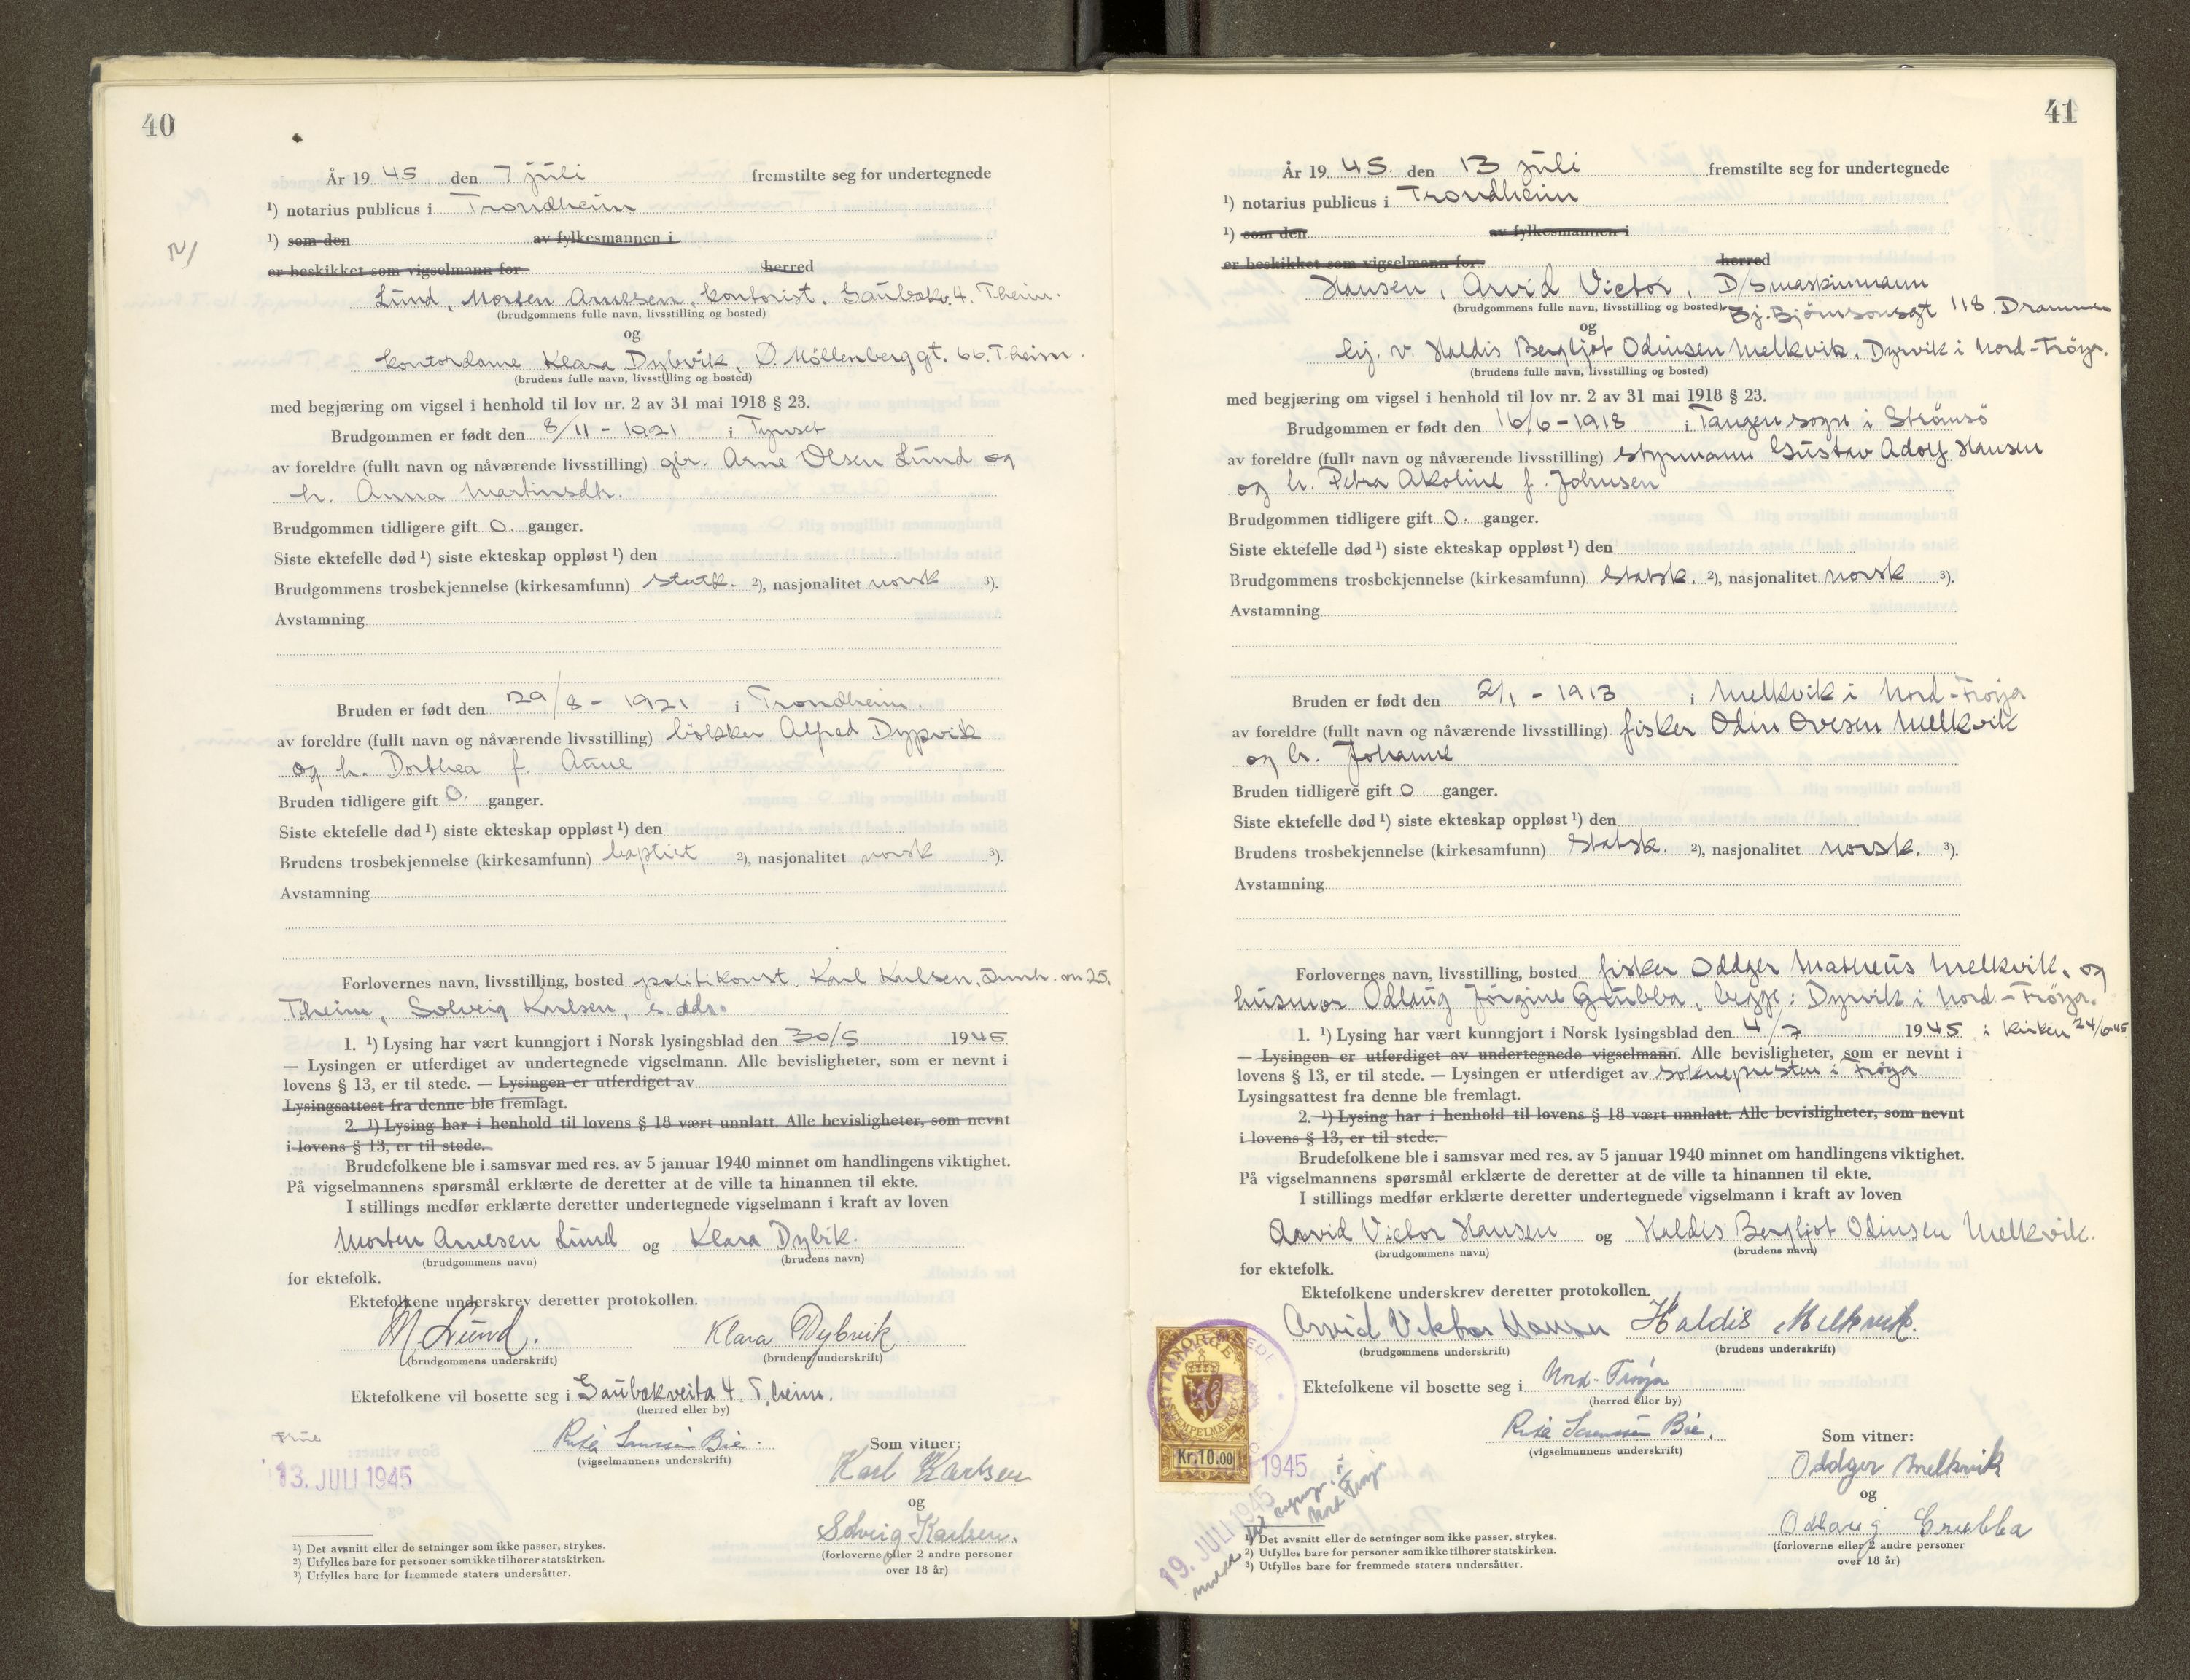 40
År 19 45 den 7 juli fremstilte seg for undertegnede
¹) notarius publicus i Trondheim
¹) som den av fylkesmannen i
er beskikket som vigselmann for herred
Lund, Morten Arnesen, kontorist. Gaubekv. 4. Theim.
(brudgommens fulle navn, livsstilling og bosted)
og
kontordame Klara Dybvik, O. Möllenberggt. 66. T.heim.
(brudens fulle navn, livsstilling og bosted)
med begjæring om vigsel i henhold til lov nr. 2 av 31 mai 1918 § 23.
Brudgommen er født den 8/11 - 1921 i Tynset
av foreldre (fullt navn og nåværende livsstilling) gbr. Arne Olsen Lund og
h. Anna Martinsdh.
Brudgommen tidligere gift 0. ganger.
Siste ektefelle død ¹) siste ekteskap oppløst ¹) den
Brudgommens trosbekjennelse (kirkesamfunn) statk. ²), nasjonalitet norsk ³).
Avstamning
Bruden er født den 29/8 - 1921 i Trondheim.
av foreldre (fullt navn og nåværende livsstilling) bökker Alfred Dypvik
og h. Dorthea f. Aune
Bruden tidligere gift 0. ganger.
Siste ektefelle død ¹) siste ekteskap oppløst ¹) den
Brudens trosbekjennelse (kirkesamfunn) baptist ²), nasjonalitet norsk ³).
Avstamning
Forlovernes navn, livsstilling, bosted politikonst. Karl Karlsen, 25,
Theim, Solveig Karlsen, s. adr.
1. ¹) Lysing har vært kunngjort i Norsk lysingsblad den 30/5 1945
— Lysingen er utferdiget av undertegnede vigselmann. Alle bevisligheter, som er nevnt i
lovens § 13, er til stede. — Lysingen er utferdiget av
Lysingsattest fra denne ble fremlagt.
2. ¹) Lysing har i henhold til lovens § 18 vært unnlatt. Alle bevisligheter, som nevnt
i lovens § 13, er til stede.
Brudefolkene ble i samsvar med res. av 5 januar 1940 minnet om handlingens viktighet.
På vigselmannens spørsmål erklærte de deretter at de ville ta hinannen til ekte.
I stillings medfør erklærte deretter undertegnede vigselmann i kraft av loven
Morten Arnesen Lund og Klara Dybvik.
(brudgommens navn) (brudens navn)
for ektefolk.
Ektefolkene underskrev deretter protokollen.
M. Lund. Klara Dybvik.
(brudgommens underskrift) (brudens underskrift)
Ektefolkene vil bosette seg i Gaubekveita 4. T.heim.
(herred eller by)
Bie. Som vitner:
(vigselmannens underskrift)
Karl Karlsen
13. JULI 1945
og
Solveig Karlsen.
(forloverne eller 2 andre personer
over 18 år)
¹) Det avsnitt eller de setninger som ikke passer, strykes.
²) Utfylles bare for personer som ikke tilhører statskirken.
³) Utfylles bare for fremmede staters undersåtter.
41
År 19 45. den 13 juli fremstilte seg for undertegnede
¹) notarius publicus i Trondheim
¹) som den av fylkesmannen i
er beskikket som vigselmann for herred
Hansen, Arvid Victor, D/S maskinmann
(brudgommens fulle navn, livsstilling og bosted) Bj. Björnsonsgt 118. Drammen
og
hj. v. Haldis Bergljot Odinsen Melkvik, Dyrvik i Nord-Fröya.
(brudens fulle navn, livsstilling og bosted)
med begjæring om vigsel i henhold til lov nr. 2 av 31 mai 1918 § 23.
Brudgommen er født den 16/6 - 1918 i Tangen sogn i Strömsö
av foreldre (fullt navn og nåværende livsstilling) styrmann Gustav Adolf Hansen
og h. Petra Akoline f. Johnsen
Brudgommen tidligere gift 0. ganger.
Siste ektefelle død ¹) siste ekteskap oppløst ¹) den
Brudgommens trosbekjennelse (kirkesamfunn) statsk. ²), nasjonalitet norsk ³).
Avstamning
Bruden er født den 2/1 - 1913 i Melkvik i Nord-Fröya
av foreldre (fullt navn og nåværende livsstilling) fisker Odin Ovesen Melkvik
og h. Johanne
Bruden tidligere gift 0. ganger.
Siste ektefelle død ¹) siste ekteskap oppløst ¹) den
Brudens trosbekjennelse (kirkesamfunn) statsk. ²), nasjonalitet norsk. ³).
Avstamning
Forlovernes navn, livsstilling, bosted fisker Oddger Matheus Melkvik, og
husmor Odlaug Jörgine Grubba, begge: Dyrvik i Nord-Fröya.
1. ¹) Lysing har vært kunngjort i Norsk lysingsblad den 4/7 1945 i kirken 24/6 45
— Lysingen er utferdiget av undertegnede vigselmann. Alle bevisligheter, som er nevnt i
lovens § 13, er til stede. — Lysingen er utferdiget av soknepresten i Fröya
Lysingsattest fra denne ble fremlagt.
2. ¹) Lysing har i henhold til lovens § 18 vært unnlatt. Alle bevisligheter, som nevnt
i lovens § 13, er til stede.
Brudefolkene ble i samsvar med res. av 5 januar 1940 minnet om handlingens viktighet.
På vigselmannens spørsmål erklærte de deretter at de ville ta hinannen til ekte.
I stillings medfør erklærte deretter undertegnede vigselmann i kraft av loven
Arvid Victor Hansen og Haldis Bergljot Odinsen Melkvik.
(brudgommens navn) (brudens navn)
for ektefolk.
Ektefolkene underskrev deretter protokollen.
Arvid Viktor Hansen Haldis Melkvik.
(brudgommens underskrift) (brudens underskrift)
Ektefolkene vil bosette seg i Nord-Fröya
(herred eller by)
Bie. Som vitner:
(vigselmannens underskrift)
NORGE
STEMPELMERKE
Kr. 10.00
1945
Oddger Melkvik
og
Odlaug Grubba
(forloverne eller 2 andre personer
over 18 år)
19. JULI 1945
Nord Fröya
¹) Det avsnitt eller de setninger som ikke passer, strykes.
²) Utfylles bare for personer som ikke tilhører statskirken.
³) Utfylles bare for fremmede staters undersåtter.